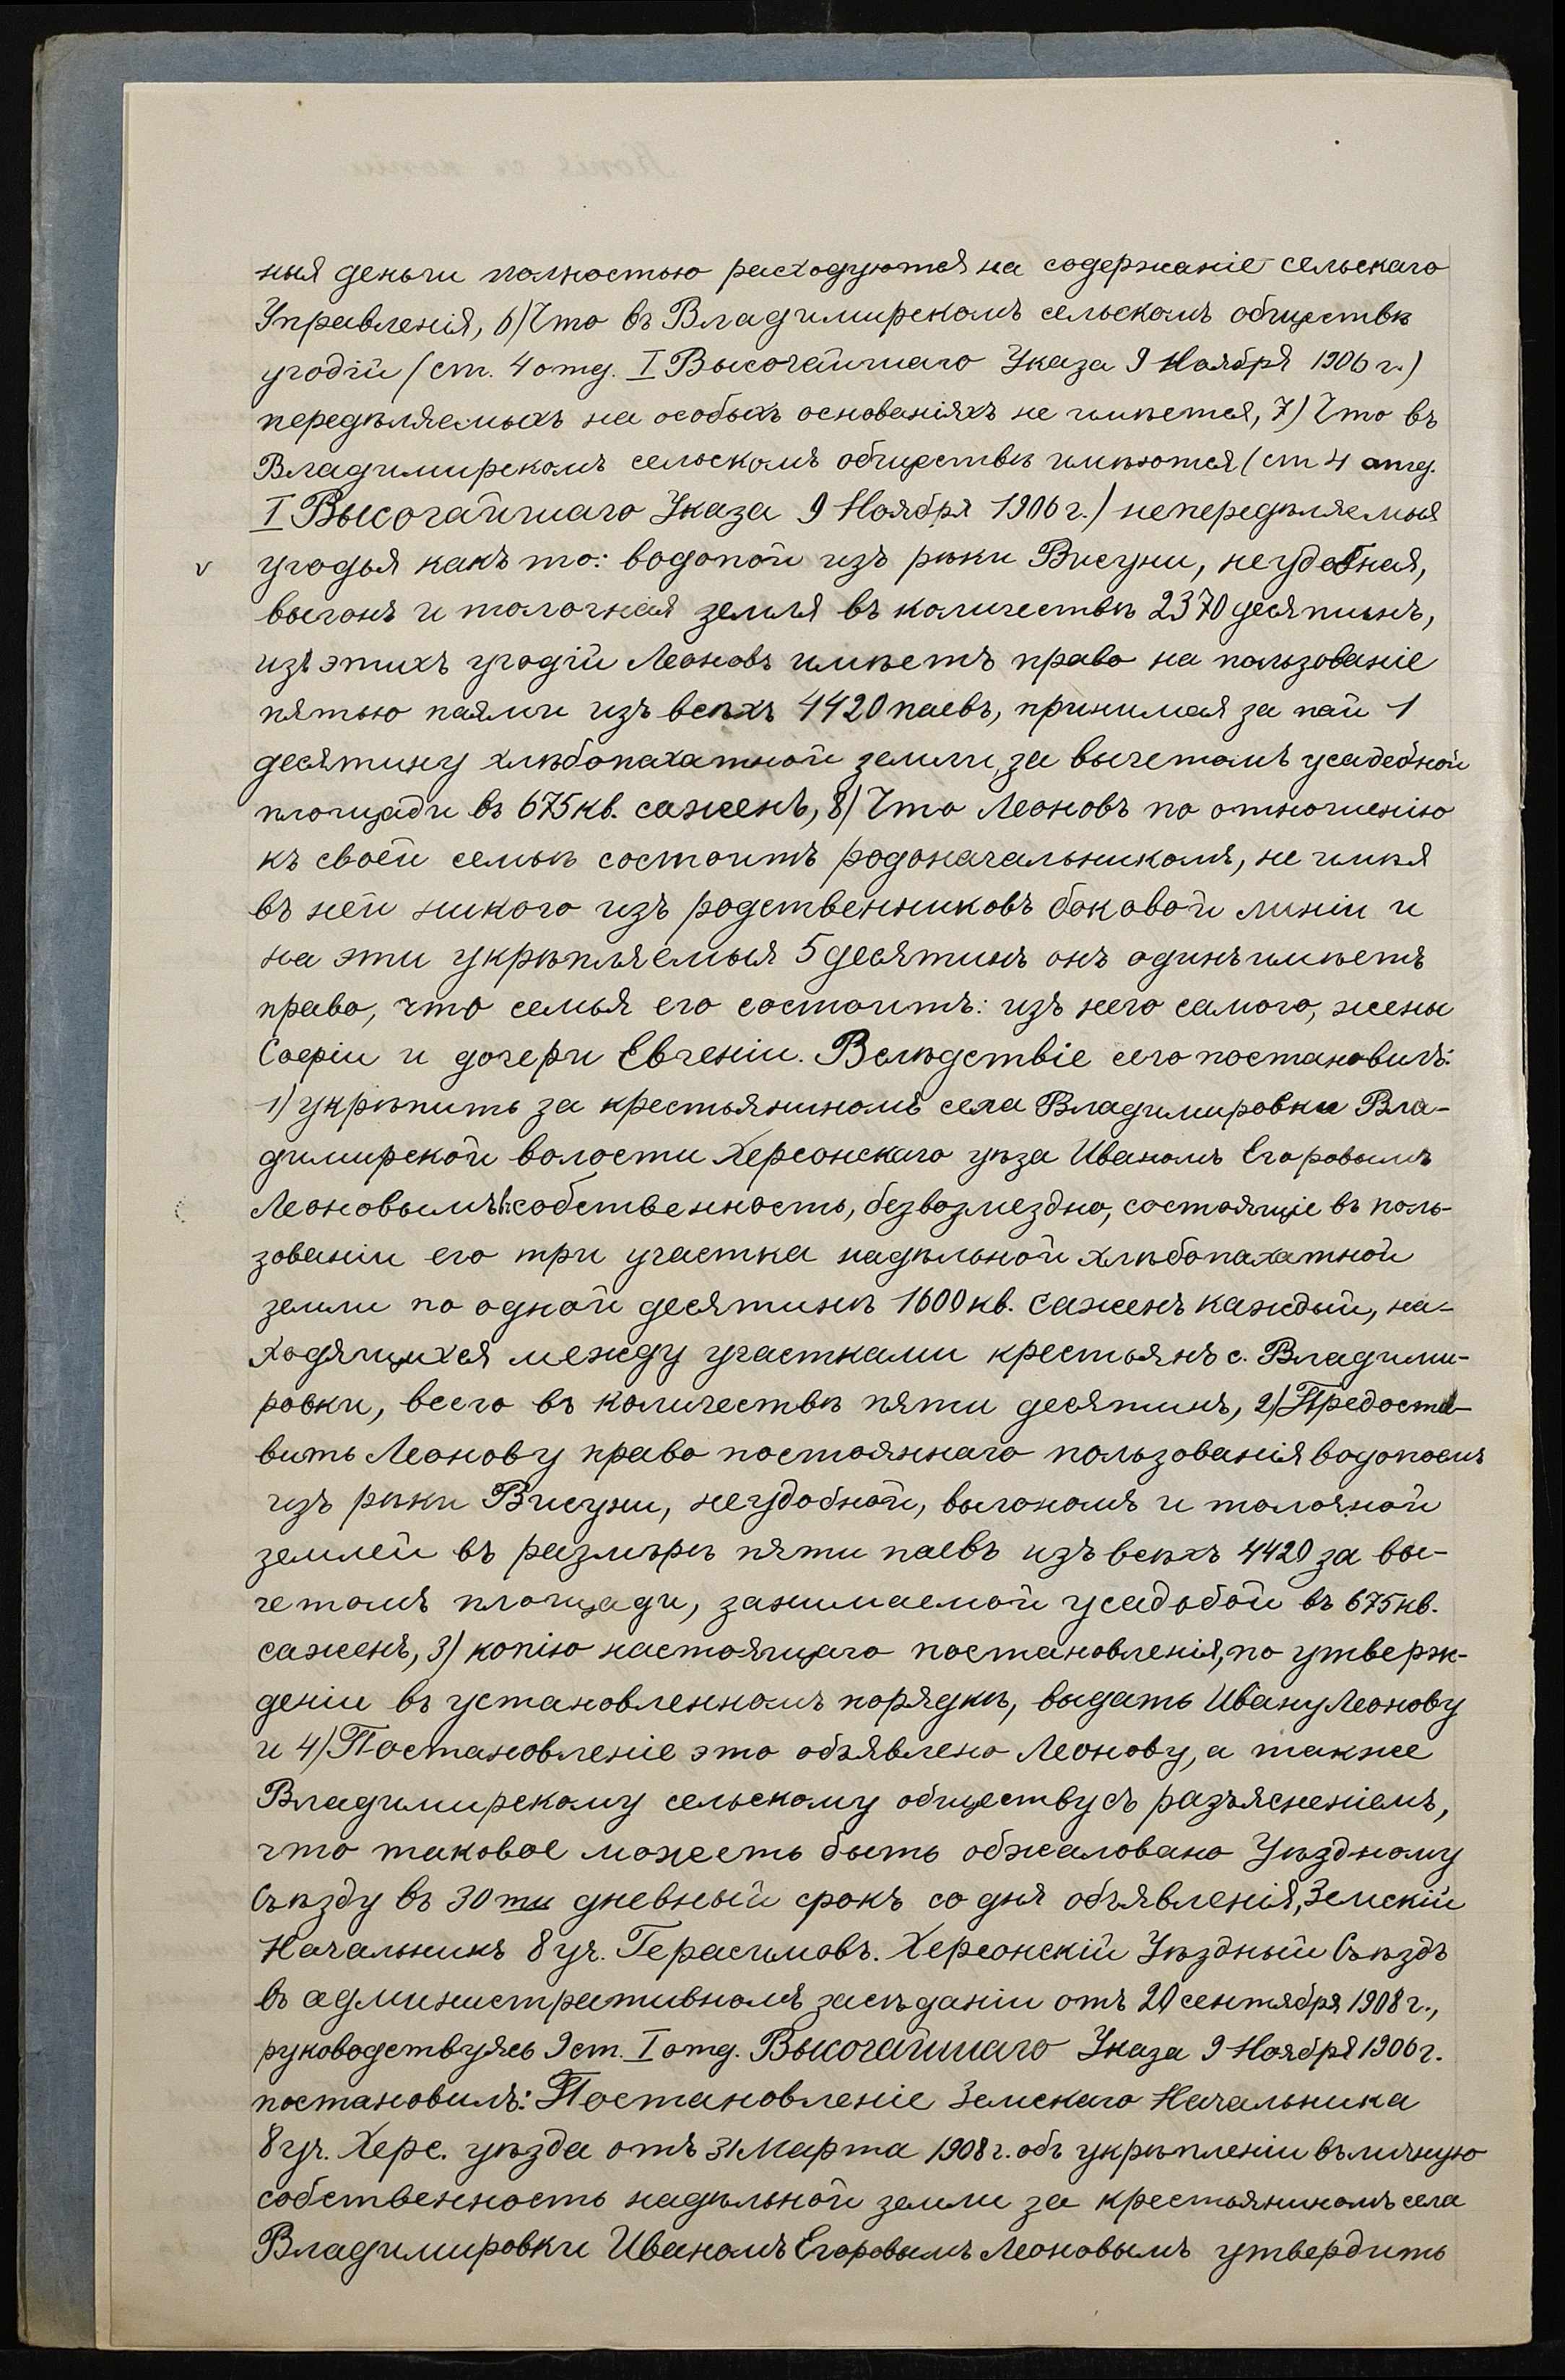 ныя деньги полностью расходуются на содержаніе сельскаго
Управленія, 6) Что въ Владимирскомъ сельскомъ обществѣ
угодій (ст. 4 отд. I Высочайшаго Указа 9 Ноября 1906 г.)
передѣляемыхъ на особыхъ основаніяхъ не имѣется, 7) Что въ
Владимирскомъ сельскомъ обществѣ имѣются (ст 4 отд.
I Высочайшаго Указа 9 Ноября 1906 г.) непередѣляемыя
v угодья какъ то: водопой изъ рѣки Висуни, неудобная,
выгонъ и толочная земля въ количествѣ 2370 десятинъ,
изъ этихъ угодій Леоновъ имѣетъ право на пользованіе
пятью паями изъ всѣхъ 4420 паевъ, принимая за пай 1
десятину хлѣбопахатной земли, за вычетомъ усадебной
площади въ 675 кв. сажень, 8) Что Леоновъ по отношенію
къ своей семьѣ состоитъ родоначальникомъ, не имѣя
въ ней никого изъ родственниковъ боковой линіи и
на эти укрѣпляемыя 5 десятинъ онъ одинъ имѣетъ
право, что семья его состоитъ: изъ него самого, жены
Софіи и дочери Евгеніи. Вслѣдствіе сего постановилъ:
1) укрѣпить за крестьяниномъ села Владимировки Вла-
димирской волости Херсонскаго уѣза Иваномъ Егоровымъ
Леоновымъ въ собственность, безвозмездно, состоящіе въ поль-
зованіи его три участка надѣльной хлѣбопахатной
земли по одной десятинѣ 1600 кв. сажень каждый, на-
ходящихся между участками крестьянъ с. Владими-
ровки, всего въ количествѣ пяти десятинъ, 2) Предоста-
вить Леонову право постояннаго пользованія водопоемъ
изъ рѣки Висуни, неудобной, выгономъ и толочной
землей въ размѣрѣ пяти паевъ изъ всѣхъ 4420 за вы-
четомъ площади, занимаемой усадьбой въ 675 кв.
сажень, 3) копію настоящаго постановленія, по утверж-
деніи въ установленномъ порядкѣ, выдать Ивану Леонову
и 4) Постановленіе это объявлено Леонову, а также
Владимирскому сельскому обществу съ разъясненіемъ,
что таковое можеть быть обжаловано Уѣздному
Съѣзду въ 30 ти дневный срокъ со дня объявленія, Земскій
Начальникъ 8 уч. Герасимовъ. Херсонскій Уѣздный Съѣздъ
въ административномъ засѣданіи отъ 20 сентября 1908 г.,
руководствуясь 9 ст. I отд. Высочайшаго Указа 9 Ноября 1906 г.
постановилъ: Постановленіе Земскаго Начальника
8 уч. Херс. уѣзда отъ 31 Марта 1908 г. объ укрѣпленіи въ личную
собственность надѣльной земли за крестьяниномъ села
Владимировки Иваномъ Егоровымъ Леоновымъ утвердить